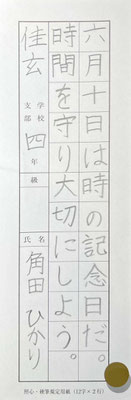 六月十日は時の記念日だ。
時間を守り大切にしよう。
佳玄
学校
支部
四年
級
氏名
角田ひかり
硬筆規定用紙(12字×2行)